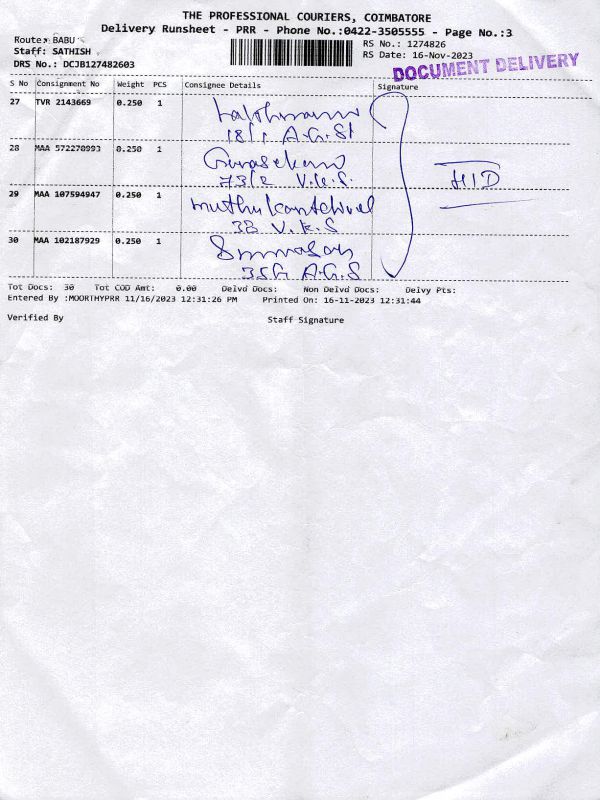 THE PROFESSIONAL COURIERS, COIMBATORE
Delivery Runsheet - PRR - Phone No.:0422-3505555 - Page No.:3
Route: BABU
Staff: SATHISH
DRS No.: DCJB127482603
RS No.: 1274826
RS Date: 16-Nov-2023
DOCUMENT DELIVERY
S No Consignment No Weight PCS Consignee Details Signature
27 TVR 2143669 0.250 1
18/1 A.G.St
28 MAA 572270993 0.250 1 Gunasekaran
73/2 V.K.S.
29 MAA 107594947 0.250 1
38 V.K.S
HID
30 MAA 102187929 0.250 1 Srinivasan
35G A.G.S
Tot Docs: 30 Tot COD Amt: 0.00 Delvd Docs: Non Delvd Docs: Delvy Pts:
Entered By :MOORTHYPRR 11/16/2023 12:31:26 PM Printed On: 16-11-2023 12:31:44
Verified By Staff Signature